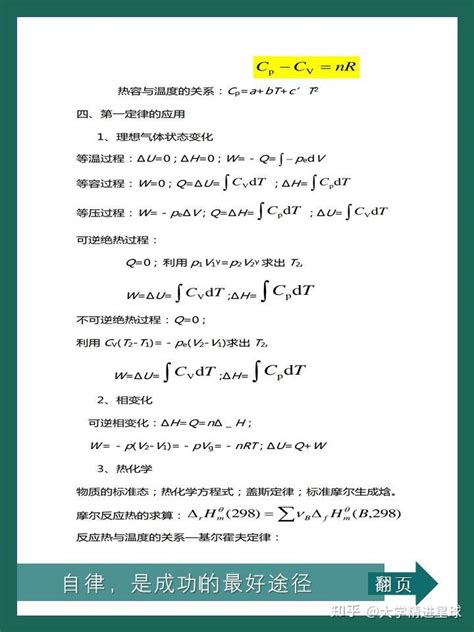 Cp − CV = nR
热容与温度的关系：Cp=a+bT+c’T²
四、第一定律的应用
1、理想气体状态变化
等温过程：ΔU=0；ΔH=0；W=－Q=∫－pedV
等容过程：W=0；Q=ΔU=∫CVdT；ΔH=∫CpdT
等压过程：W=－peΔV；Q=ΔH=∫CpdT；ΔU=∫CVdT
可逆绝热过程：
Q=0；利用 p1V1γ=p2V2γ求出 T2,
W=ΔU=∫CVdT;ΔH=∫CpdT
不可逆绝热过程：Q=0；
利用 CV(T2-T1)=－pe(V2-V1)求出 T2,
W=ΔU=∫CVdT;ΔH=∫CpdT
2、相变化
可逆相变化：ΔH=Q=nΔ_H；
W=－p(V2-V1)=－pVg=－nRT；ΔU=Q+W
3、热化学
物质的标准态；热化学方程式；盖斯定律；标准摩尔生成焓。
摩尔反应热的求算：ΔrHmθ(298)=∑νBΔfHmθ(B,298)
反应热与温度的关系—基尔霍夫定律：
自律，是成功的最好途径
翻页
知乎 @大学精进星球